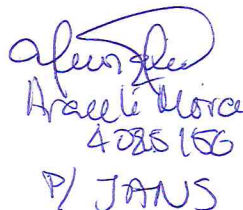 Araceli Mora
4085156
P/ JANS